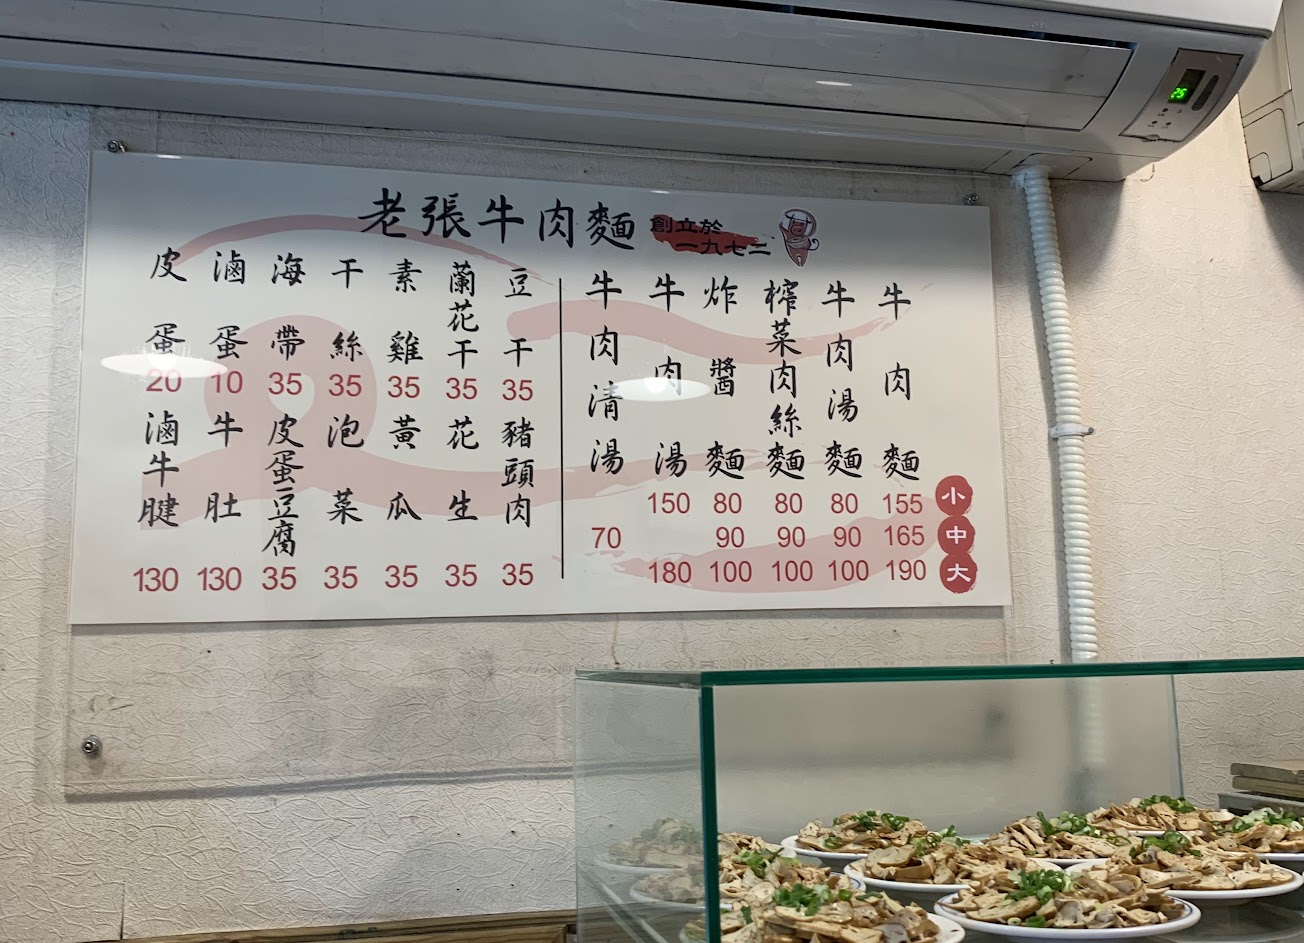 老張牛肉麵
創立於
一九七二
牛肉麵
155
165
190
牛肉湯麵
80
90
100
榨菜肉絲麵
80
90
100
炸醬麵
80
90
100
牛肉湯
150
180
牛肉清湯
70
小
中
大
豆干
35
蘭花干
35
素雞
35
干絲
35
海帶
35
滷蛋
10
皮蛋
20
豬頭肉
35
花生
35
黃瓜
35
泡菜
35
皮蛋豆腐
35
牛肚
130
滷牛腱
130